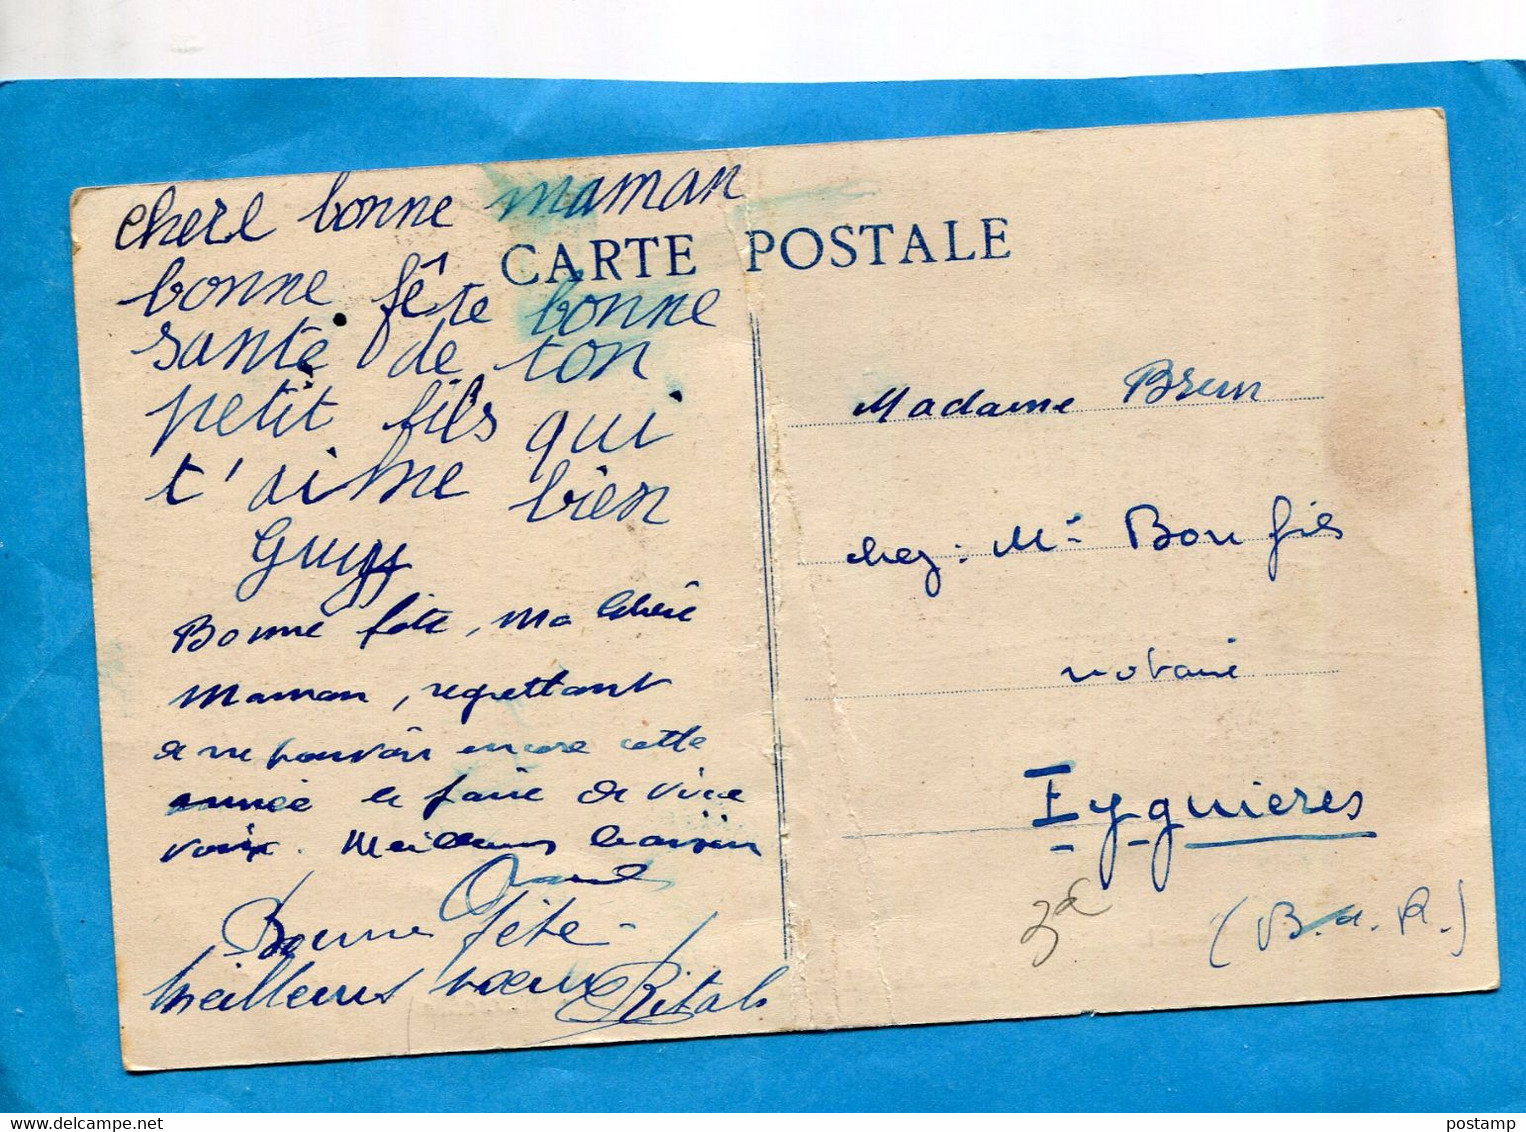 chere bonne maman
bonne fête bonne
santé de ton
petit fils qui
t'aime bien
Guy
Bonne fête, Ma Chère
Maman, regrettant
de ne pouvoir encore cette
année le faire de vive
voix. Meilleurs baisers
Bonne fête -
Meilleurs vœux
CARTE POSTALE
Madame Brun
chez: Me Bonfils
notaire
Eyguieres
(B. d. R.)
postamp